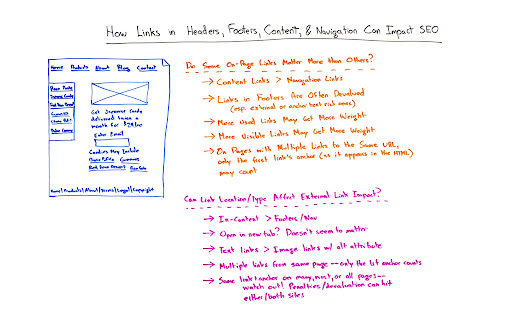 How Links in Headers, Footers, Content, & Navigation Can Impact SEO
Home Products About Blog Contact
Get Japanese Candy
delivered twice a
month for
Enter Email
Candies May Include
Home|Products|About|Terms|Legal|Copyright
Do Some On-Page Links Matter More than Others?
→ Content Links > Navigation Links
→ Links in Footers Are Often Devalued
(esp. external or anchor text rich ones)
→ More Used Links May Get More Weight
→ More Visible Links May Get More Weight
→ On Pages with Multiple Links to the Same URL,
only the first link's anchor (as it appears in the HTML)
may count
Can Link Location/Type Affect External Link Impact?
→ In-Content > Footers/Nav
→ Open in new tab? Doesn't seem to matter
→ Text links > Image links w/ alt attribute
→ Multiple links from same page -- only the 1st anchor counts
→ Same link+anchor on many, most, or all pages--
watch out! Penalties/devaluation can hit
either/both sites